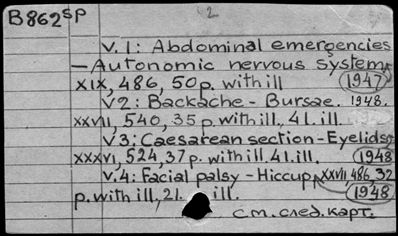 B862SP
2
V.1: Abdominal emergencies
— Autonomic nervous system.
XIX, 486, 50p. with ill 1947
V2: Backache - Bursae. 1948.
XXVII, 540, 35p. with ill., 4 l. ill.
V3: Caesarean section - Eyelids
XXXVI, 524, 37p. with ill. 4 l. ill. 1948
V.4: Facial palsy - Hiccup, XXVII, 486, 32
p. with ill, 2 l. ill. 1948
см. след. карт.